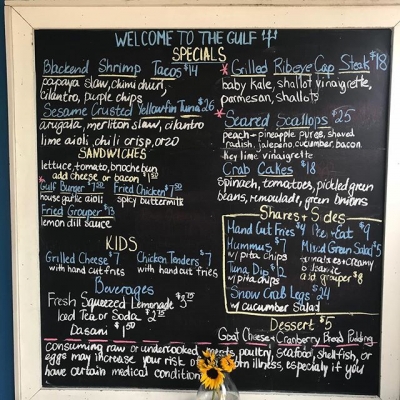 WELCOME TO THE GULF
SPECIALS
Blackend Shrimp Tacos $14
papaya slaw, chimichuri,
cilantro, purple chips
Sesame Crusted Yellowfin Tuna $26
arugala, merliton slaw, cilantro
lime aioli, chili crisp, orzo
SANDWICHES
lettuce, tomato, brioche bun
add cheese or bacon $1.50
*Gulf Burger $7.50
house garlic aioli
Fried Chicken $7.50
spicy buttermilk
Fried Grouper $13
lemon dill sauce
KIDS
Grilled Cheese $7
with hand cut fries
Chicken Tenders $7
with hand cut fries
Beverages
Fresh Squeezed Lemonade $3.75
Iced Tea or Soda $2.75
Dasani $1.50
*Grilled Ribeye Cap Steak $18
baby kale, shallot vinaigrette,
parmesan, shallots
*Seared Scallops $25
peach + pineapple puree, shaved
radish, jalepeno, cucumber, bacon,
key lime vinaigrette
Crab Cakes $18
spinach, tomatoes, pickled green
beans, remoulade, green onions
Shares + Sides
Hand Cut Fries $4
Peel n Eat $9
Hummus $7
w/ pita chips
Mixed Green Salad $5
tomatoes + creamy
balsamic
add grouper $8
Tuna Dip $12
w/ pita chips
Snow Crab Legs $24
w/ cucumber salad
Dessert $5
Goat Cheese + Cranberry Bread Pudding
consuming raw or undercooked meats, poultry, seafood, shellfish, or
eggs may increase your risk of illness, especially if you
have certain medical conditions